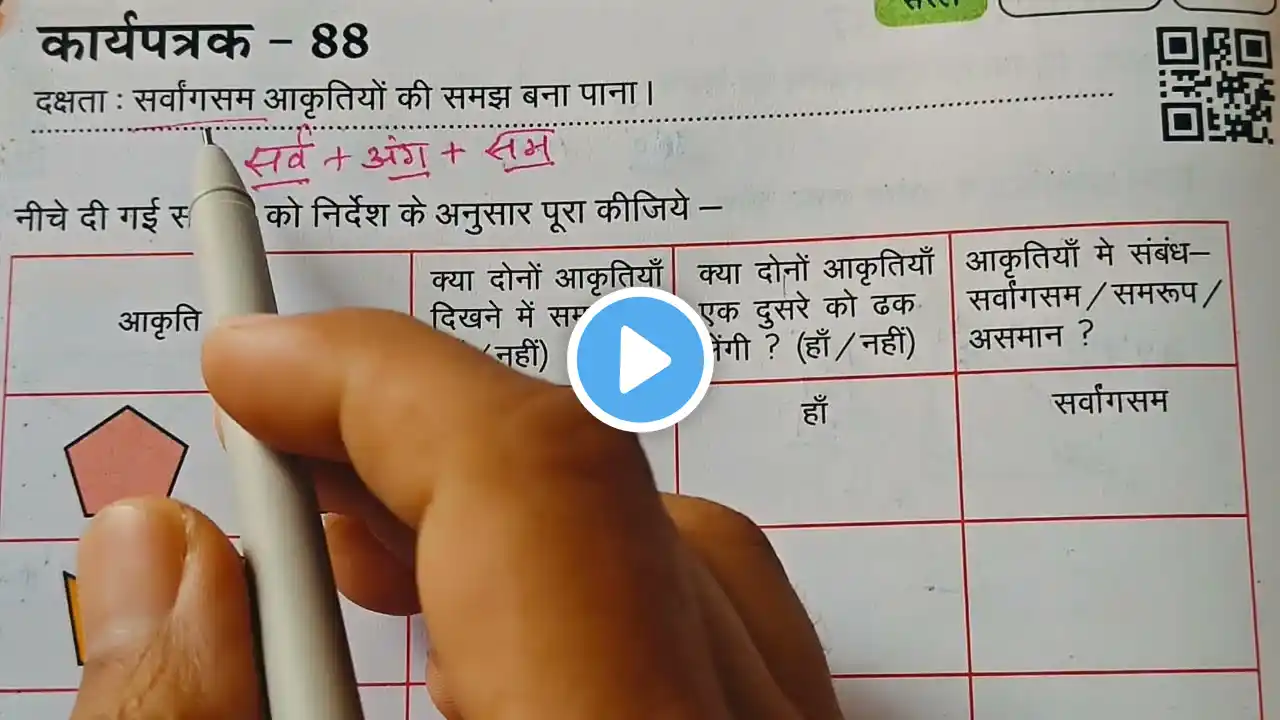 सरल
कार्यपत्रक – 88
दक्षता : सर्वांगसम आकृतियों की समझ बना पाना।
सर्व + अंग + सम
नीचे दी गई को निर्देश के अनुसार पूरा कीजिये –
आकृति
क्या दोनों आकृतियाँ
दिखने में
/नहीं)
क्या दोनों आकृतियाँ
एक दुसरे को ढक
लेंगी ? (हाँ / नहीं)
आकृतियाँ मे संबंध–
सर्वांगसम / समरूप /
असमान ?
हाँ
सर्वांगसम